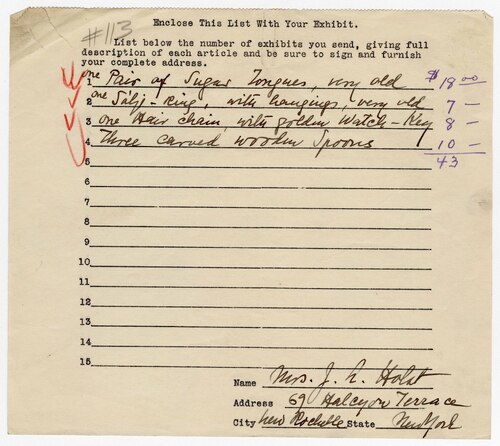 #113
Enclose This List With Your Exhibit.
List below the number of exhibits you send, giving full
description of each article and be sure to sign and furnish
your complete address.
1 one Pair of Sugar Tongues, very old $ 18 00
2 one Sölj - ring, with hangings, very old 7 —
3 one Hair chain, with golden Watch - Key 8 —
4 Three carved wooden Spoons 10 —
5 43
6
7
8
9
10
11
12
13
14
15
Name Mrs. J. A. Holst
Address 69 Halcyon Terrace
City New Rochelle State New York